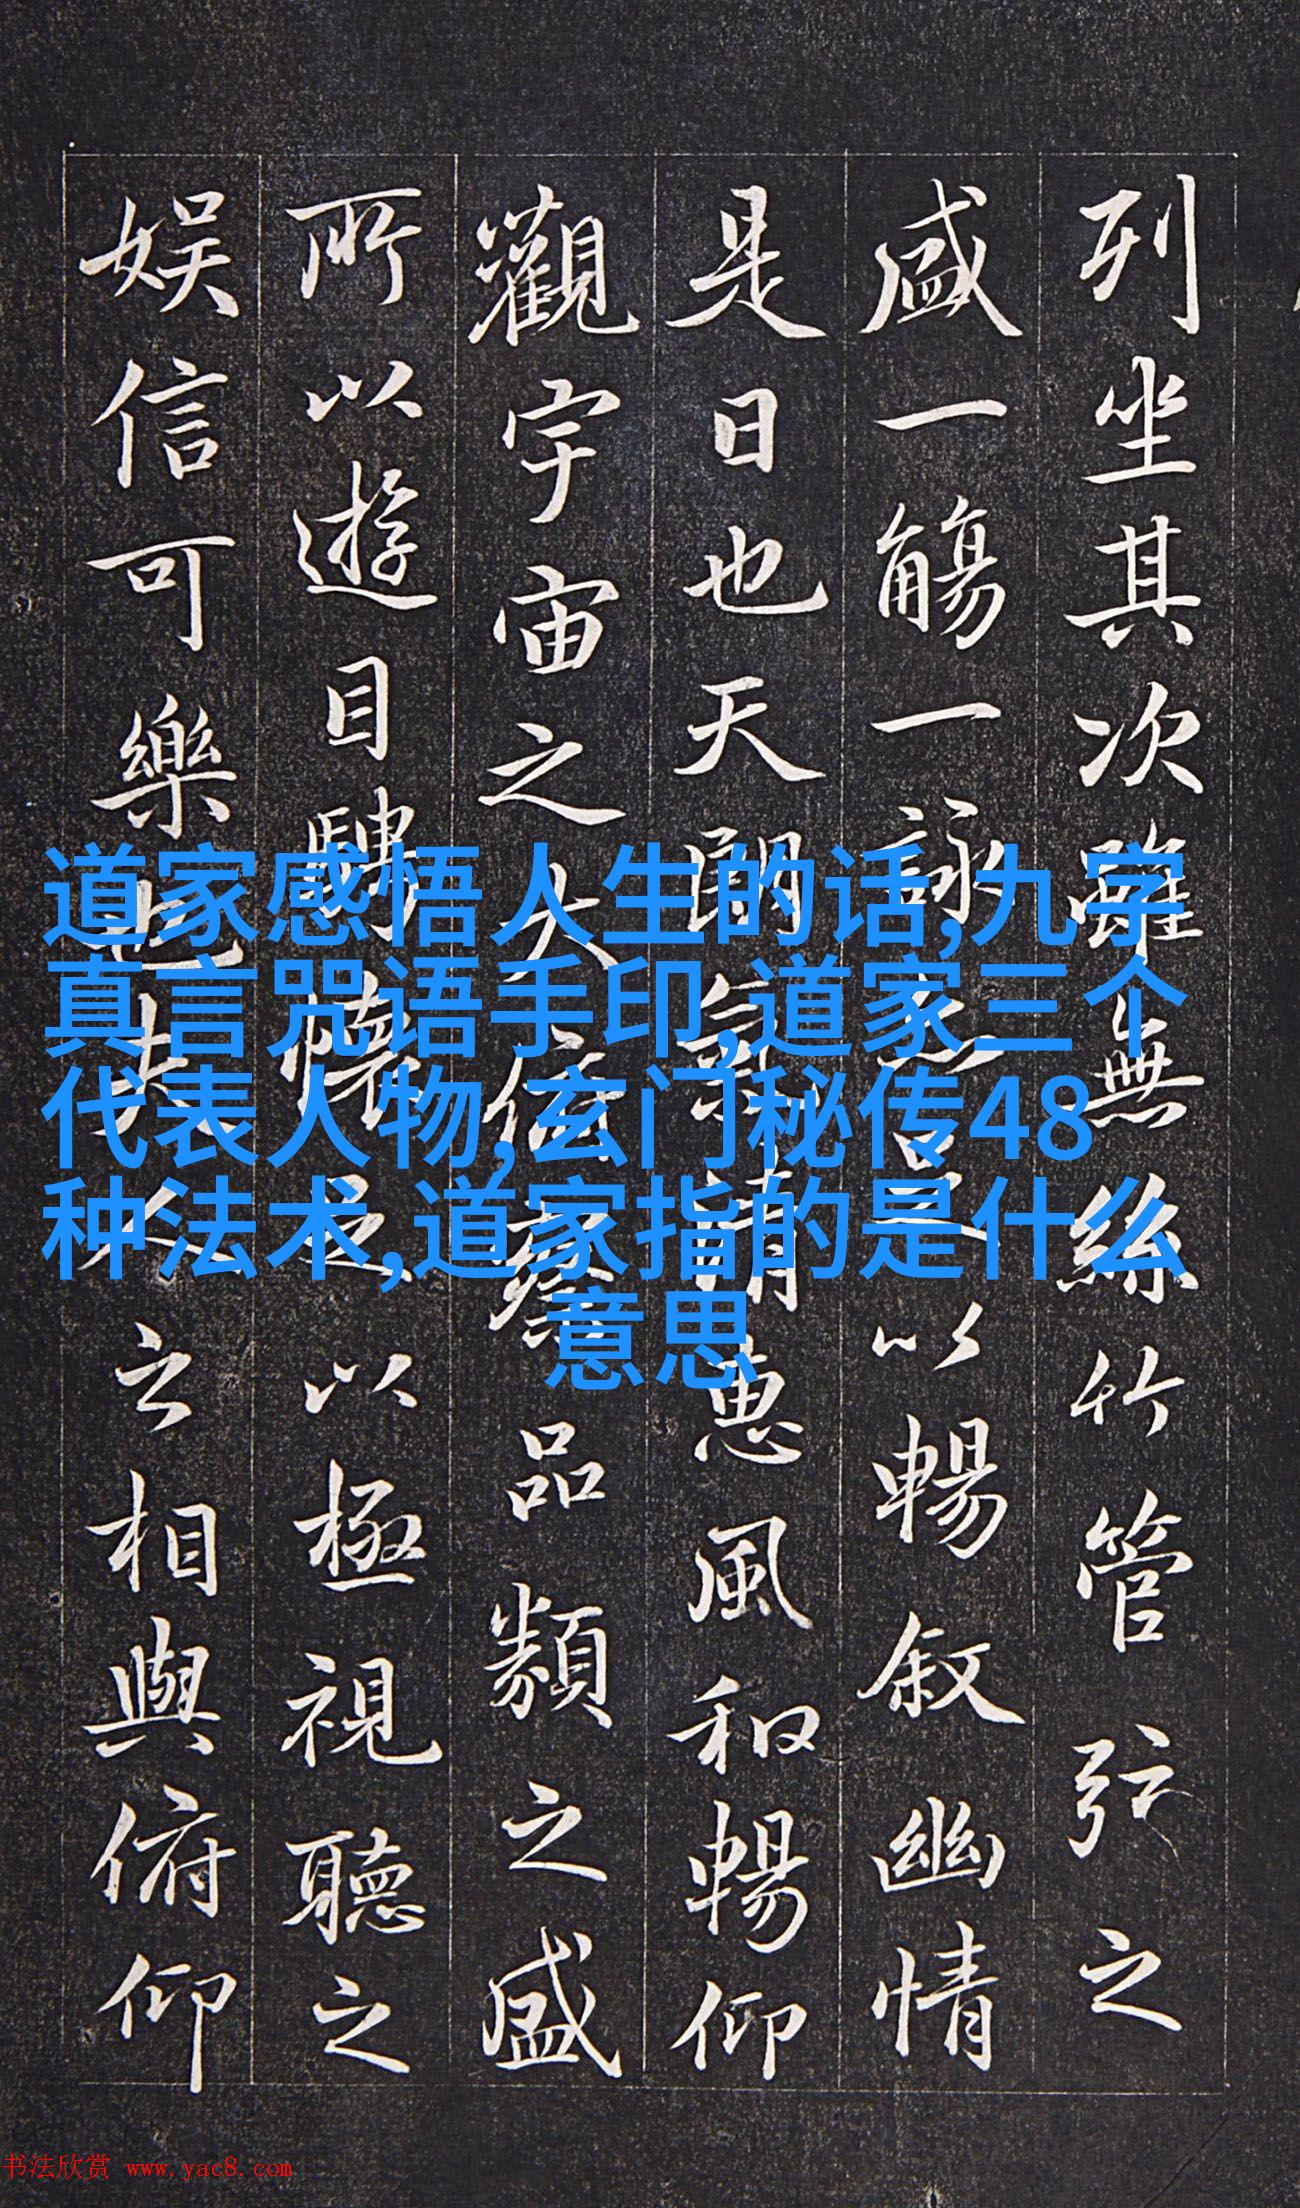 列坐其次雖無絲竹管弦之
盛一觴一詠以暢敘幽情
是日也天朗氣清惠風和暢仰
觀宇宙之大俯察品類之盛
所以遊目騁懷足以極視聽之
娛信可樂也夫人之相與俯仰
道家感悟人生的话,九字
真言咒语手印,道家三个
代表人物,玄门秘传48
种法术,道家指的是什么
意思
书法欣赏 www.yac8.com